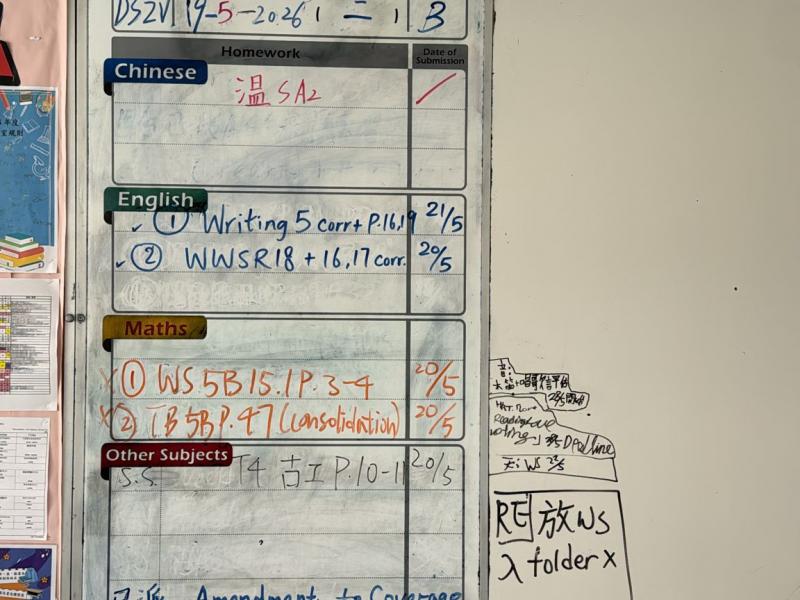 19-5-2026 ( 二 ) B
Homework
Date of Submission
Chinese
温 SA2 /
English
✓ ① Writing 5 corr + P.16,19 21/5
✓ ② WWSR18 + 16,17 corr. 20/5
Maths
① WS 5B 15.1 P.3-4 20/5
② TB 5B P.47 (consolidation) 20/5
Other Subjects
S.S T4 古工 P.10-11 20/5
Amendment to Coverage
Deadline
WS 22/5
RE 放 WS
入 folder x